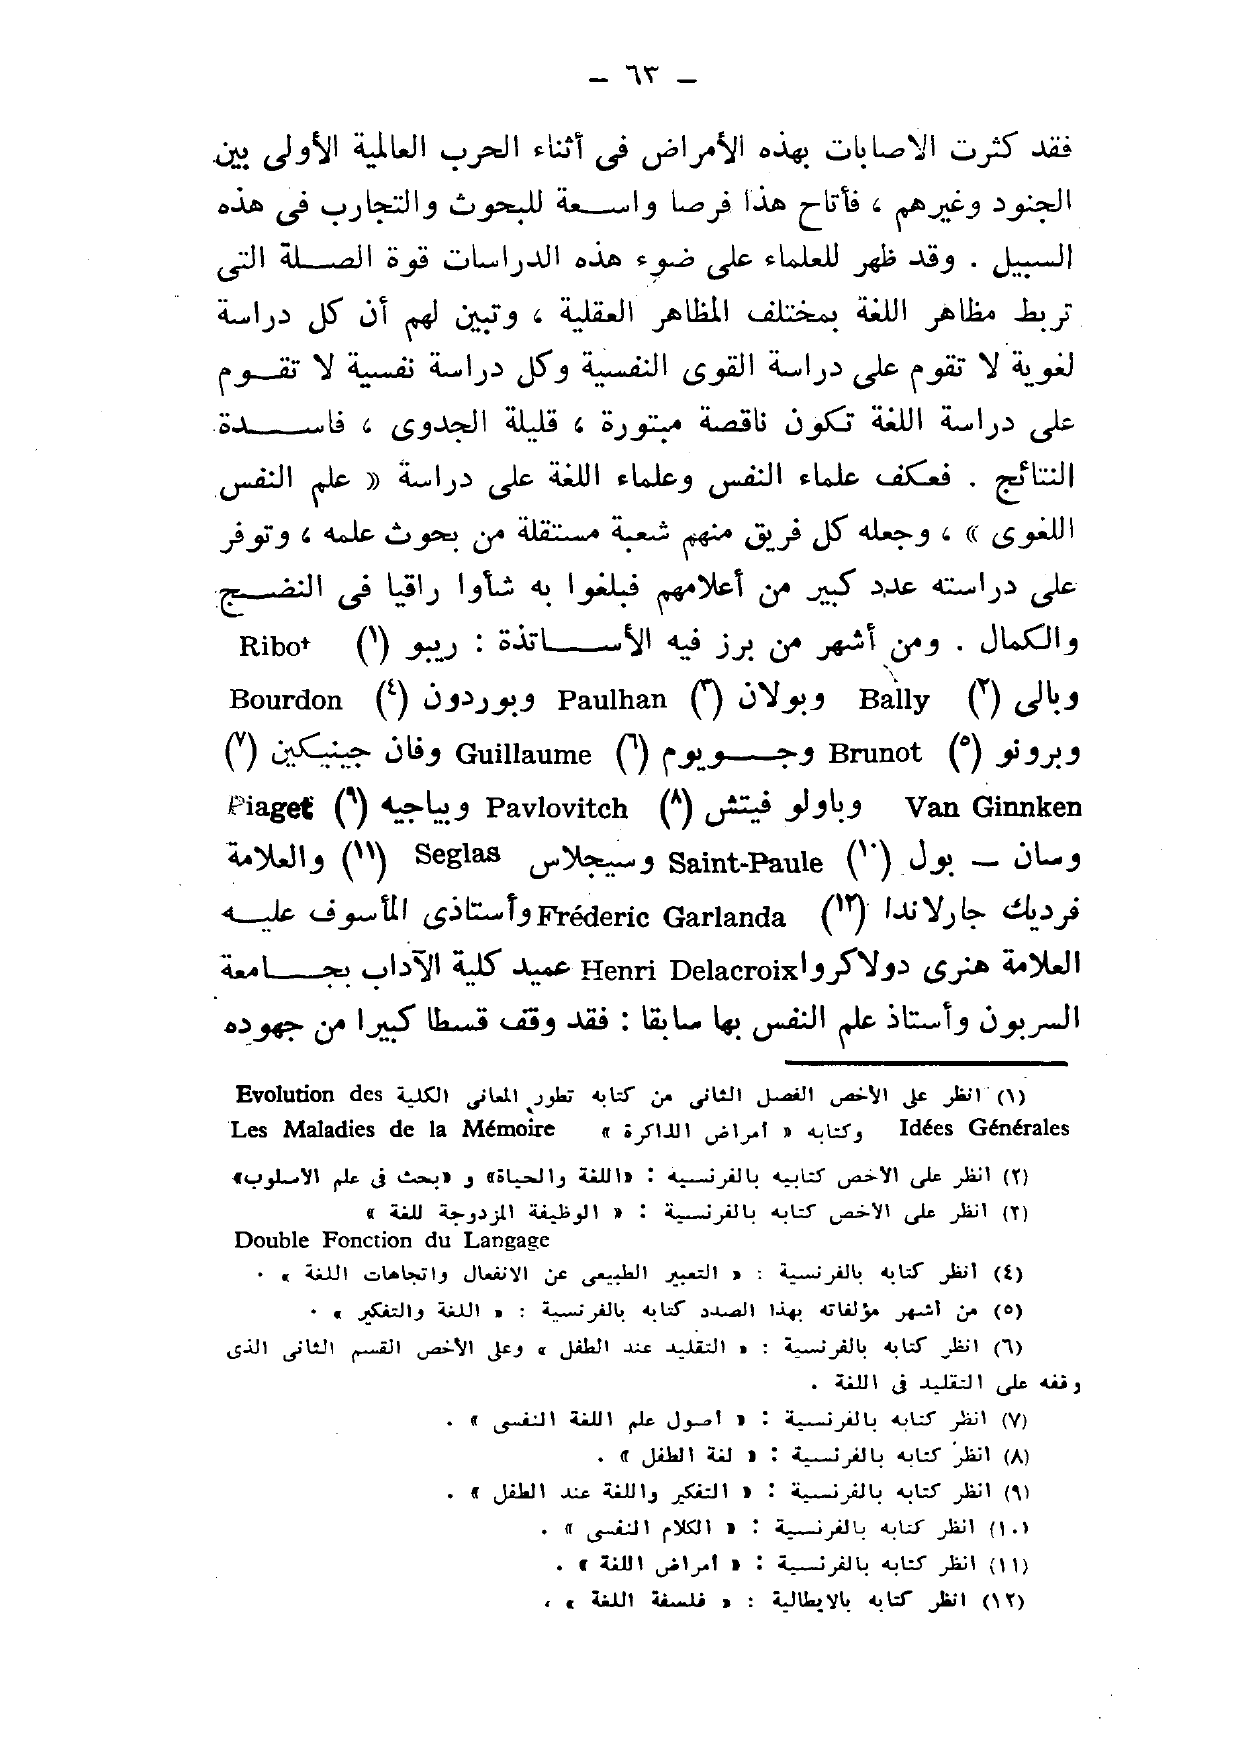 – ٦٣ –
فقد كثرت الاصابات بهذه الأمراض فى أثناء الحرب العالمية الأولى بين
الجنود وغيرهم ، فأتاح هذا فرصا واسعة للبحوث والتجارب فى هذه
السبيل . وقد ظهر للعلماء على ضوء هذه الدراسات قوة الصلة التى
تربط مظاهر اللغة بمختلف المظاهر العقلية ، وتبين لهم أن كل دراسة
لغوية لا تقوم على دراسة القوى النفسية وكل دراسة نفسية لا تقوم
على دراسة اللغة تكون ناقصة مبتورة ، قليلة الجدوى ، فاسدة
النتائج . فعكف علماء النفس وعلماء اللغة على دراسة « علم النفس
اللغوى » ، وجعله كل فريق منهم شعبة مستقلة من بحوث علمه ، وتوفر
على دراسته عدد كبير من أعلامهم فبلغوا به شأوا راقيا فى النضج
والكمال . ومن أشهر من برز فيه الأساتذة : ريبو (١) Ribot
وبالى (٢) Bally وبولان (٣) Paulhan وبوردون (٤) Bourdon
وبرونو (٥) Brunot وجويوم (٦) Guillaume وفان جينيكين (٧)
Van Ginnken وباولو فيتش (٨) Pavlovitch وبياجيه (٩) Piaget
وسان – بول (١٠) Saint-Paule وسيجلاس Seglas (١١) والعلامة
فردبك جارلاندا (١٢) Fréderic Garlanda وأستاذى المأسوف عليه
العلامة هنرى دولاكروا Henri Delacroix عميد كلية الآداب بجامعة
السربون وأستاذ علم النفس بها سابقا : فقد وقف قسطا كبيرا من جهوده
(١) انظر على الاخص الفصل الثانى من كتابه تطور المعانى الكلية Evolution des
Idées Générales وكتابه « أمراض الذاكرة » Les Maladies de la Mémoire
(٢) انظر على الاخص كتابيه بالفرنسية : «اللغة والحياة» و «بحث فى علم الاسلوب»
(٢) انظر على الاخص كتابه بالفرنسية : « الوظيفة المزدوجة للغة »
Double Fonction du Langage
(٤) انظر كتابه بالفرنسية : « التعبير الطبيعى عن الانفعال واتجاهات اللغة » .
(٥) من أشهر مؤلفاته بهذا الصدد كتابه بالفرنسية : « اللغة والتفكير » .
(٦) انظر كتابه بالفرنسية : « التقليد عند الطفل » وعلى الأخص القسم الثانى الذى
وقفه على التقليد فى اللغة .
(٧) انظر كتابه بالفرنسية : « أصول علم اللغة النفسى » .
(٨) انظر كتابه بالفرنسية : « لغة الطفل » .
(٩) انظر كتابه بالفرنسية : « التفكير واللغة عند الطفل » .
(١٠) انظر كتابه بالفرنسية : « الكلام النفسى » .
(١١) انظر كتابه بالفرنسية : « أمراض اللغة » .
(١٢) انظر كتابه بالايطالية : « فلسفة اللغة » .